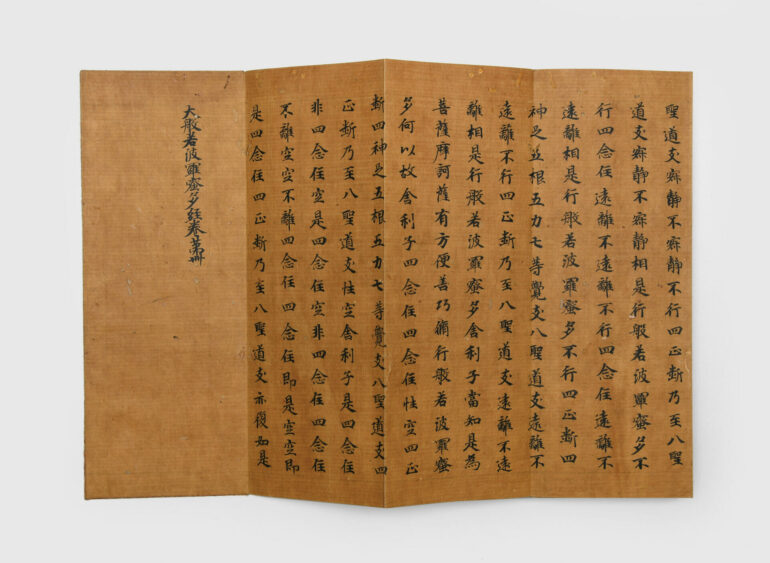 聖道支寂靜不寂靜不行四正斷乃至八聖
道支寂靜不寂靜相是行般若波羅蜜多不
行四念住遠離不遠離不行四念住遠離不
遠離相是行般若波羅蜜多不行四正斷四
神足五根五力七等覺支八聖道支遠離不
遠離不行四正斷乃至八聖道支遠離不遠
離相是行般若波羅蜜多舍利子當知是為
菩薩摩訶薩有方便善巧脩行般若波羅蜜
多何以故舍利子四念住四念住性空四正
斷四神足五根五力七等覺支八聖道支四
正斷乃至八聖道支性空舍利子是四念住
非四念住空是四念住空非四念住四念住
不離空空不離四念住四念住即是空空即
是四念住四正斷乃至八聖道支亦復如是
大般若波羅蜜多經卷第卌